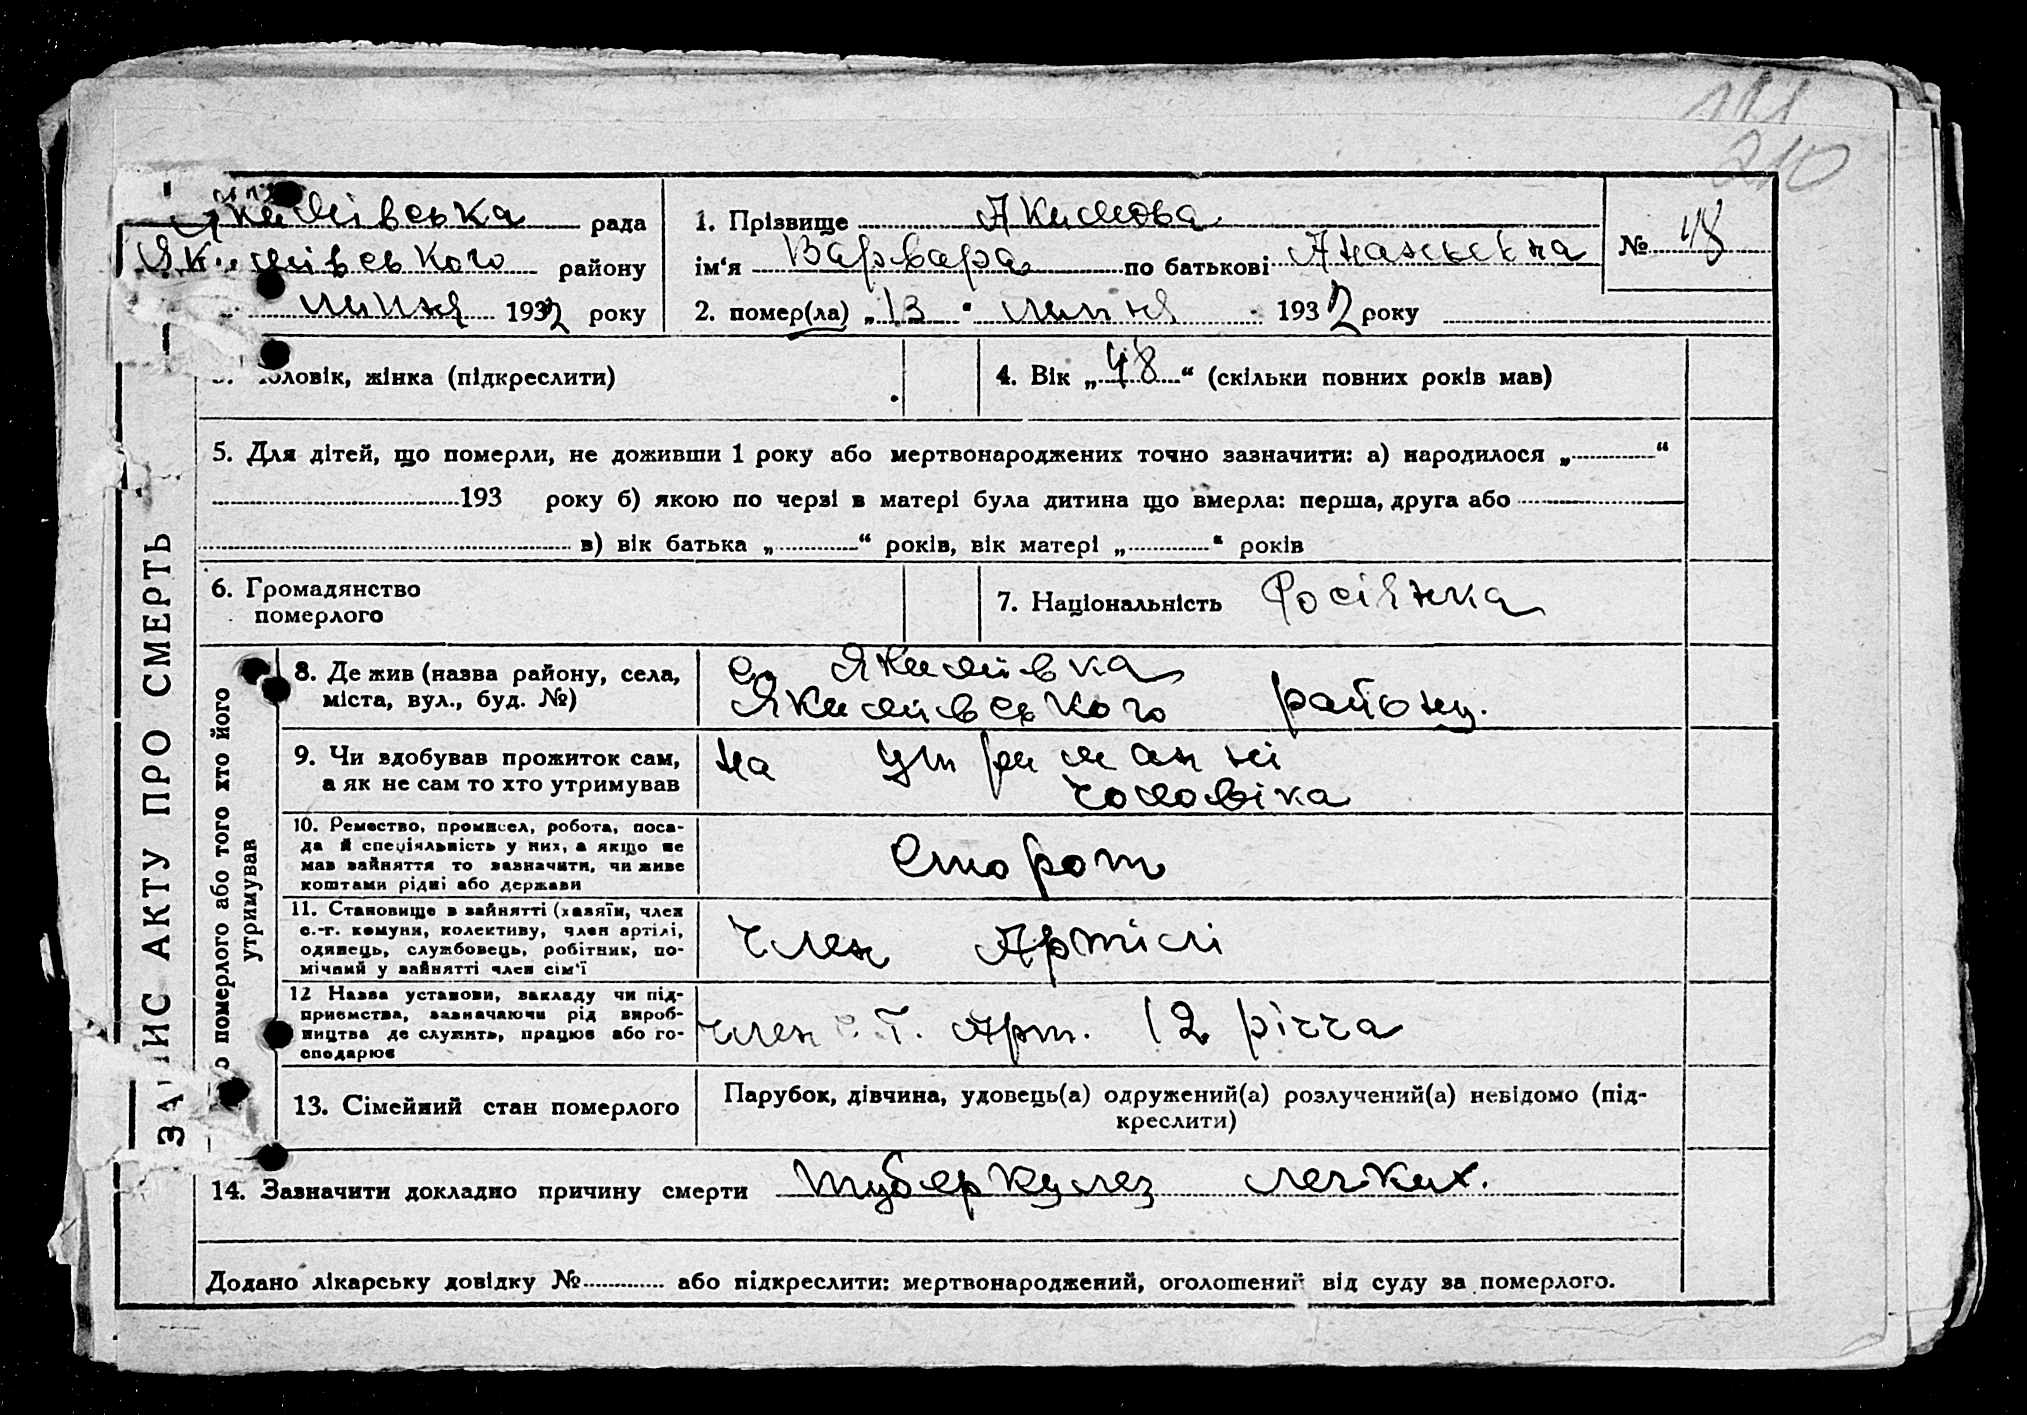 111
210
Якимівська рада
Якимівського району
липня 1932 року
1. Прізвище Акимова
ім‘я Варвара по батькові Ананьевна
№ 48
2. помер(ла) „13“ липня 1932 року
3. Чоловік, жінка (підкреслити)
4. Вік „48“ (скільки повних років мав)
5. Для дітей, що померли, не доживши 1 року або мертвонароджених точно зазначити: а) народилося „ “
193 року б) якою по черзі в матері була дитина що вмерла: перша, друга або
в) вік батька „ “ років, вік матері „ “ років
6. Громадянство
померлого
7. Національність Росіянка
ЗАПИС АКТУ ПРО СМЕРТЬ
померлого або того хто його
утримував
8. Де жив (назва району, села,
міста, вул., буд. №)
с. Якимівка
Якимівського району.
9. Чи здобував прожиток сам,
а як не сам то хто утримував
на утриманні
чоловіка
10. Ремество, промисел, робота, поса-
да й спеціяльність у них, а якщо не
мав зайняття то зазначити, чи живе
коштами рідні або держави
Сторож
11. Становище в зайнятті (хазяїн, член
с.-г. комуни, колективу, член артілі,
одинець, службовець, робітник, по-
мічний у зайнятті член сім‘ї
Член Артілі
12 Назва установи, закладу чи під-
приємства, зазначаючи рід вироб-
ництва де служить, працює або го-
сподарює
член С. Г. Арт. 12 річча
13. Сімейний стан померлого
Парубок, дівчина, удовець(а) одружений(а) розлучений(а) невідомо (під-
креслити)
14. Зазначити докладно причину смерти туберкулез легких.
Додано лікарську довідку № або підкреслити: мертвонароджений, оголошений від суду за померлого.